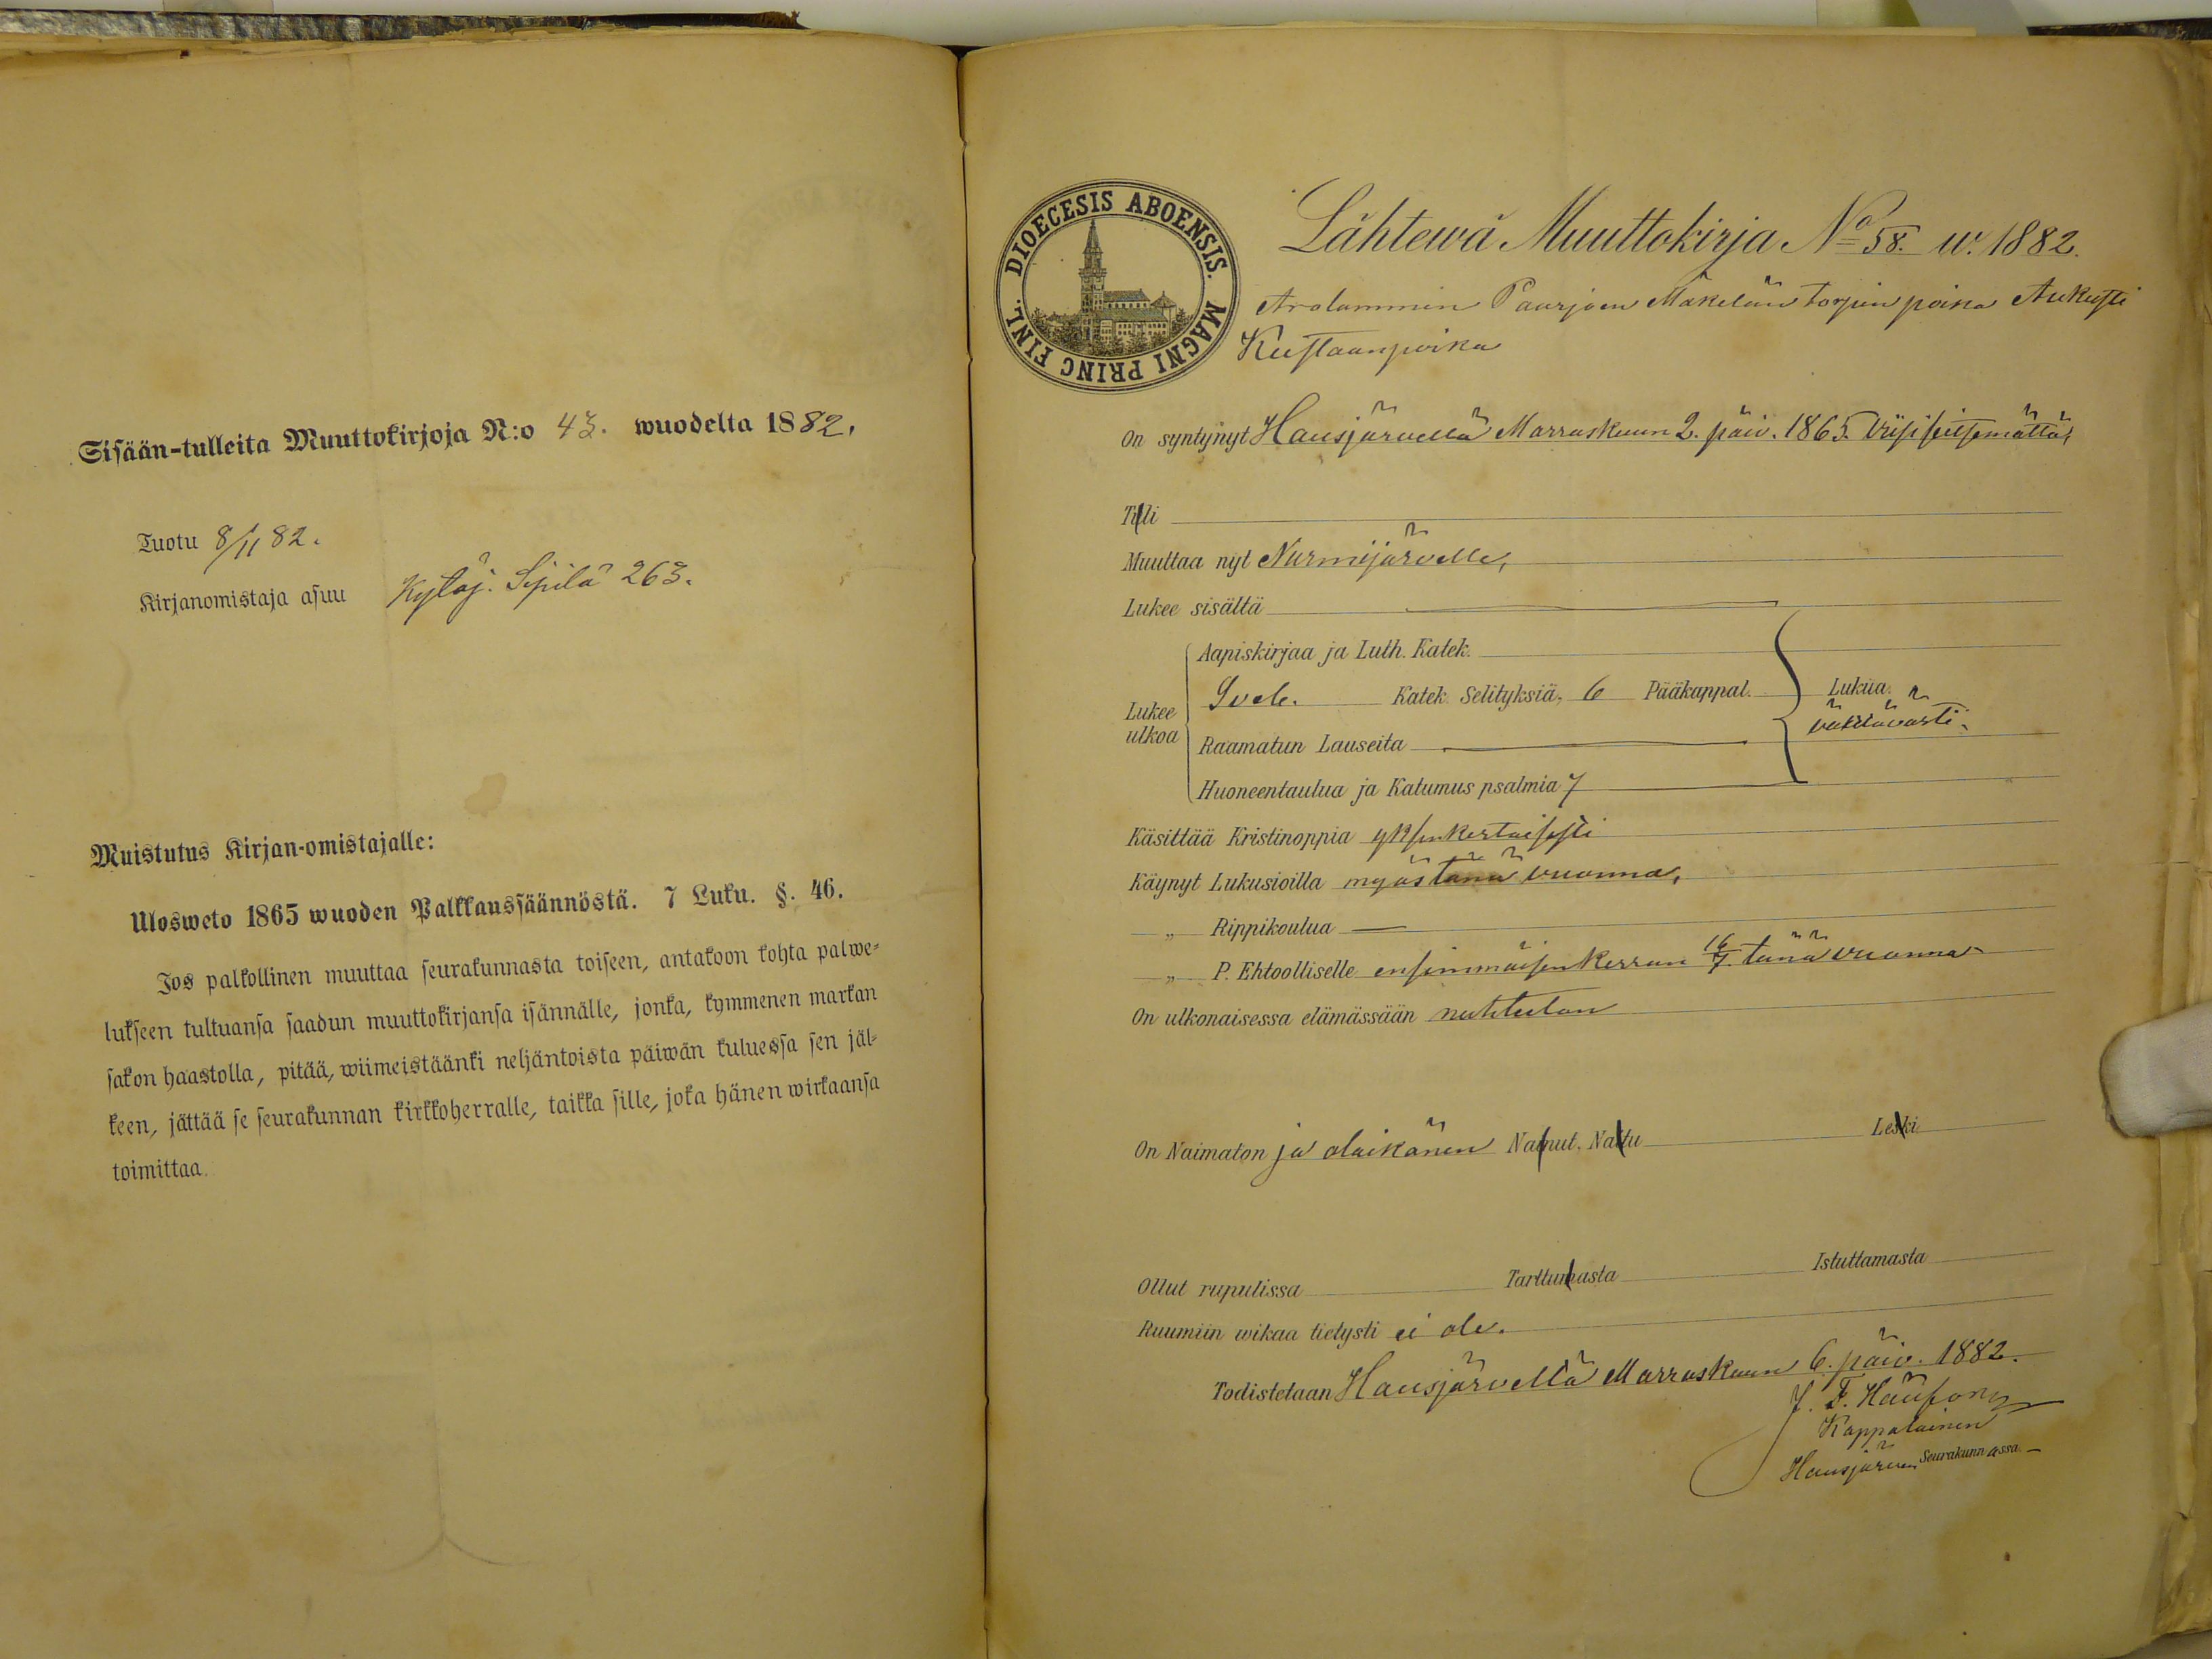 Sisään-tulleita Muuttokirjoja N:o 43. wuodelta 1882.
Tuotu 8/11 82.
Kirjanomistaja asuu Kytäj. Sipilä 263.
Muistutus Kirjan-omistajalle:
Ulosweto 1865 wuoden Palkkaussäännöstä. 7 Luku. §. 46.
Jos palkollinen muuttaa seurakunnasta toiseen, antakoon kohta palwe-
lukseen tultuansa saadun muuttokirjansa isännälle, jonka, kymmenen markan
sakon haastolla, pitää, wiimeistäänki neljäntoista päiwän kuluessa sen jäl-
keen, jättää se seurakunnan kirkkoherralle, taikka sille, joka hänen wirkaansa
toimittaa.
DIOECESIS ABOENSIS. MAGNI PRINC FINL.
Lähtewä Muuttokirja No 58. w. 1882.
Arolammin Paarjoen Mäkelän torpin poika Aukusti
Kustaanpoika
On syntynyt Hausjärvellä Marraskuun 2. päiv. 1865. Viisi seitsemättä,
Tili
Muuttaa nyt Nurmijärvelle,
Lukee sisältä
Aapiskirjaa ja Luth. Katek.
Lukee ulkoa
Sveb. Katek. Selityksiä, 6 Pääkappal. Lukua.
välttävästi.
Raamatun Lauseita
Huoneentaulua ja Katumus psalmia 7
Käsittää Kristinoppia yksinkertaisesti
Käynyt Lukusioilla myös tänä vuonna,
„ Rippikoulua
„ P. Ehtoolliselle ensimmäisen kerran 16/7 tänä vuonna
On ulkonaisessa elämässään nuhteeton
On Naimaton ja alaikänen Nainut. Naitu Leski
Ollut rupulissa Tarttumasta Istuttamasta
Ruumiin wikaa tietysti ei ole.
Todistetaan Hausjärvellä Marraskuun 6. päiv. 1882.
Kappalainen
Hausjärven Seurakunnassa